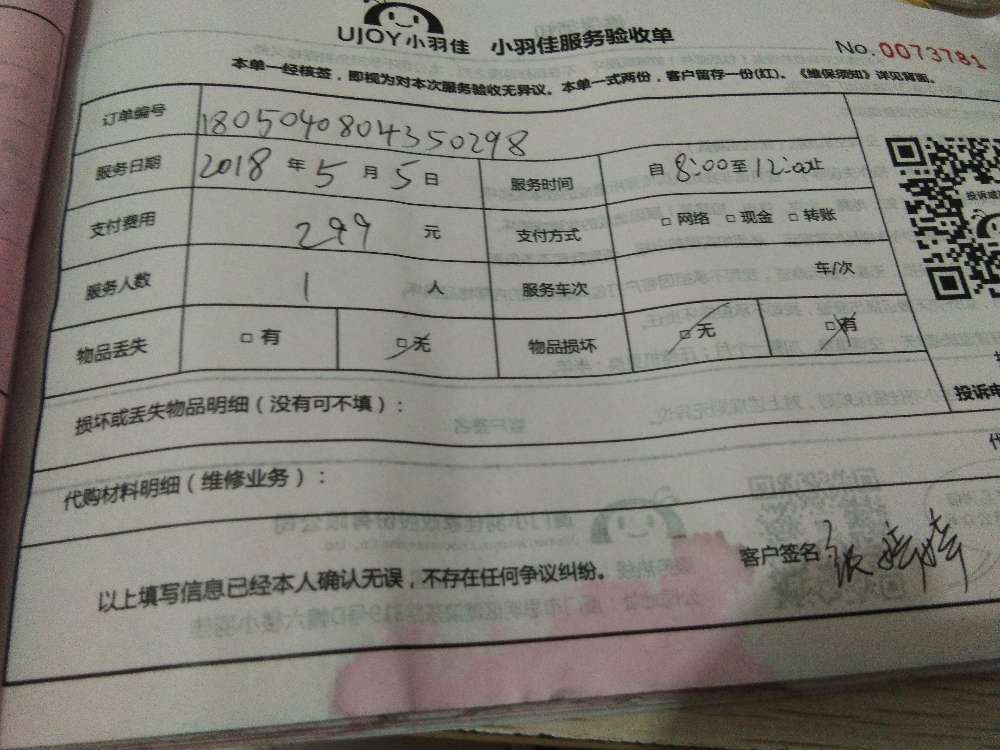 UJOY小羽佳 小羽佳服务验收单
No.0073781
本单一经核签，即视为对本次服务验收无异议。本单一式两份，客户留存一份(红)。《维保须知》详见背面。
订单编号 1805040804350298
服务日期 2018年5月5日 服务时间 自8:00至12:00止
支付费用 299元 支付方式 □网络 □现金 □转账
服务人数 1人 服务车次 车/次
物品丢失 □有 □无 物品损坏 □无 □有
损坏或丢失物品明细（没有可不填）：
投诉电
代购材料明细（维修业务）：
以上填写信息已经本人确认无误，不存在任何争议纠纷。
客户签名：张婷婷